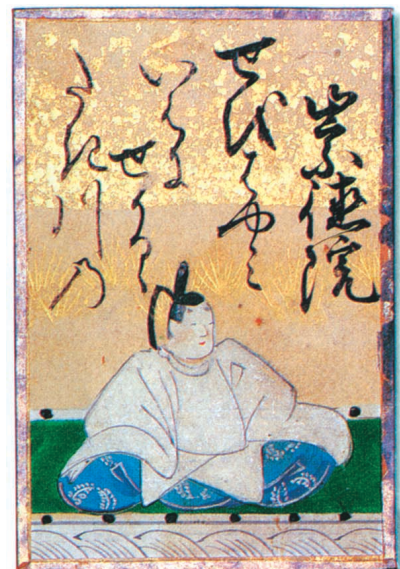 崇徳院
せをはやみ
いはに
せかるゝ
たき川の